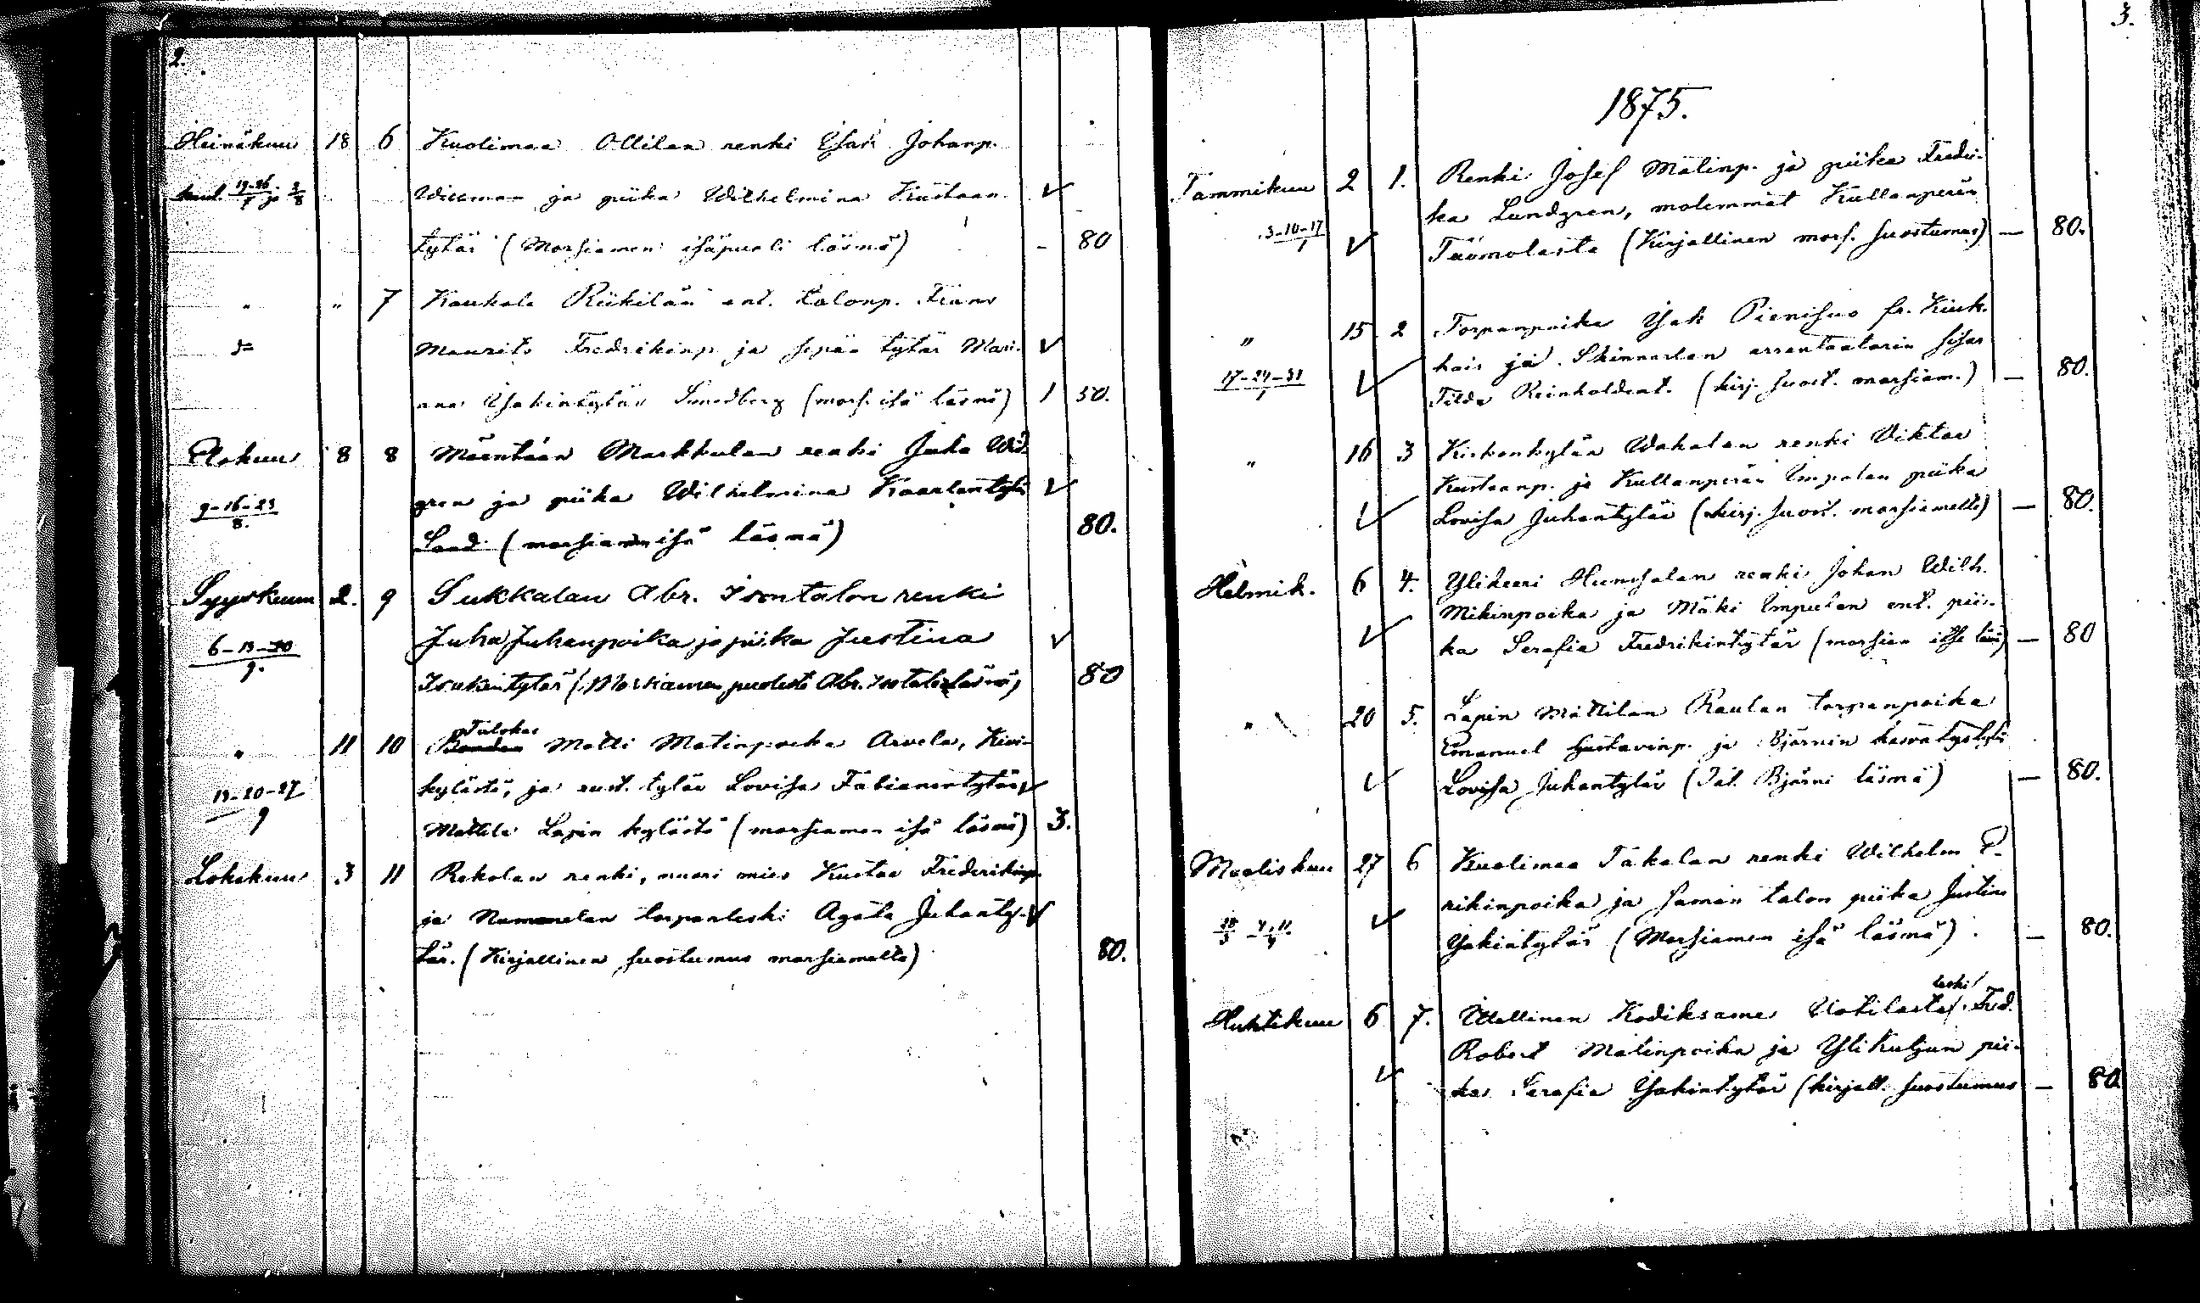 2.
Heinäkuu 18 6 Kuolimaa Ollilan renki Isak Johanp.
kuul. 19-26/7 ja 2/8 Willman ja piika Wilhelmina Kustaan
tytär (Morsiamen isäpuoli läsnä) - 80
" " 7 Kaukola Riikilän ent. talonp. Frans
Maurits Fredrikinp. ja sepän tytär Mari-
ana Isakintytär Smedberg (mors. isä läsnä) 1 50.
Elokuu 8 8 Mäentään Markkulan renki Juha Wid-
9-16-23/8. gren ja piika Wilhelmina Kaarlentytär
Sand. (morsiamen isä läsnä) 80.
Syyskuu 2. 9 Sukkalan Abr. Isontalon renki
6-13-20/9. Juha Juhanpoika ja piika Justina
Isakintytär (Morsiamen puolesta Abr. Isotalo läsnä) 80
" 11 10 Tulokas Matti Matinpoika Arvela, Kivi-
13-20-27/9 kylästä, ja rust. tytär Lovisa Fabianintytär,
Mattila Lapin kylästä (morsiamen isä läsnä) 3.
Lokakuu 3 11 Rekolan renki, nuori mies Kustaa Frederikinp.
ja torpanleski Agata Juhanty-
tär. (Kirjallinen suostumus morsiamelta) 80.
3.
1875.
Tammikuu 2 1. Renki Josef Matinp. ja piika Fredri-
ka Lundgren, molemmat Kullanperän
3-10-17/1 Tuomolasta (Kirjallinen mors. suostumus) — 80.
" 15 2 Torpanpoika Isak Pienisuo fr. Kiuk-
kais ja Skinnarlan arrentaatorin sisar
17-24-31/1 Tilda Reinholdent. (kirj. suost. morsiam.) — 80.
" 16 3 Kirkonkylän Wahalan renki Viktor
Kustaanp. ja Kullanperän Impolan piika
Lovisa Juhantytär (kirj. suost. morsiamelta) — 80.
Helmik. 6 4. Ylikieri Hemsalan renki Johan Wilh.
Mikinpoika ja Mäki Impolan ent. pii-
ka Serafia Fredrikintytär (morsian itse läsnä) — 80
" 20 5. Lapin Mattilan Raulan torpanpoika
Emanuel Gustavinp. ja Björnin kasvatustytär
Lovisa Juhantytär (Tal. Björni läsnä) — 80.
Maaliskuu 27 6 Kuolimaa Takalan renki Wilhelm E-
rikinpoika ja saman talon piika Justina
28/3 4-11/4 Isakintytär (Morsiamen isä läsnä). — 80.
leski
Huhtikuu 6 7. Itsellinen Kodiksame Uotilasta, Fred.
Robert Matinpoika ja Ylikuljun pii-
ka Serafia Isakintytär (kirjall. suostumus — 80